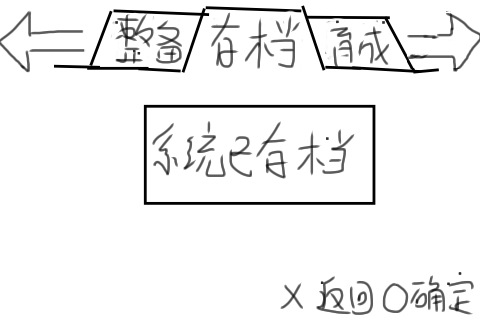 整备 存档 育成
系统已存档
X 返回 O 确定